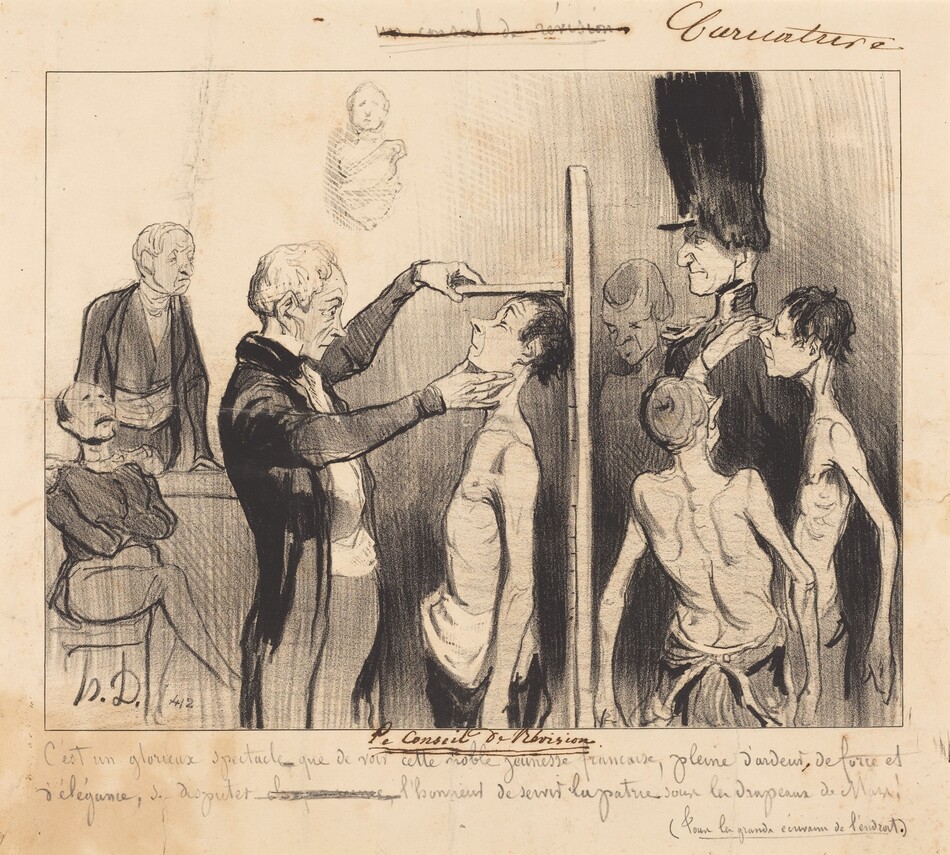 un conseil de révision
Caricature
h. D.
412
Le Conseil De Révision.
C'est un glorieux spectacle que de voir cette noble jeunesse francaise, pleine d'ardeur, de force et
d'élégance, se disputer l'honneur de servir la patrie sous les drapeaux de Mars!
(Pour les grands écrivains de l'endroit.)